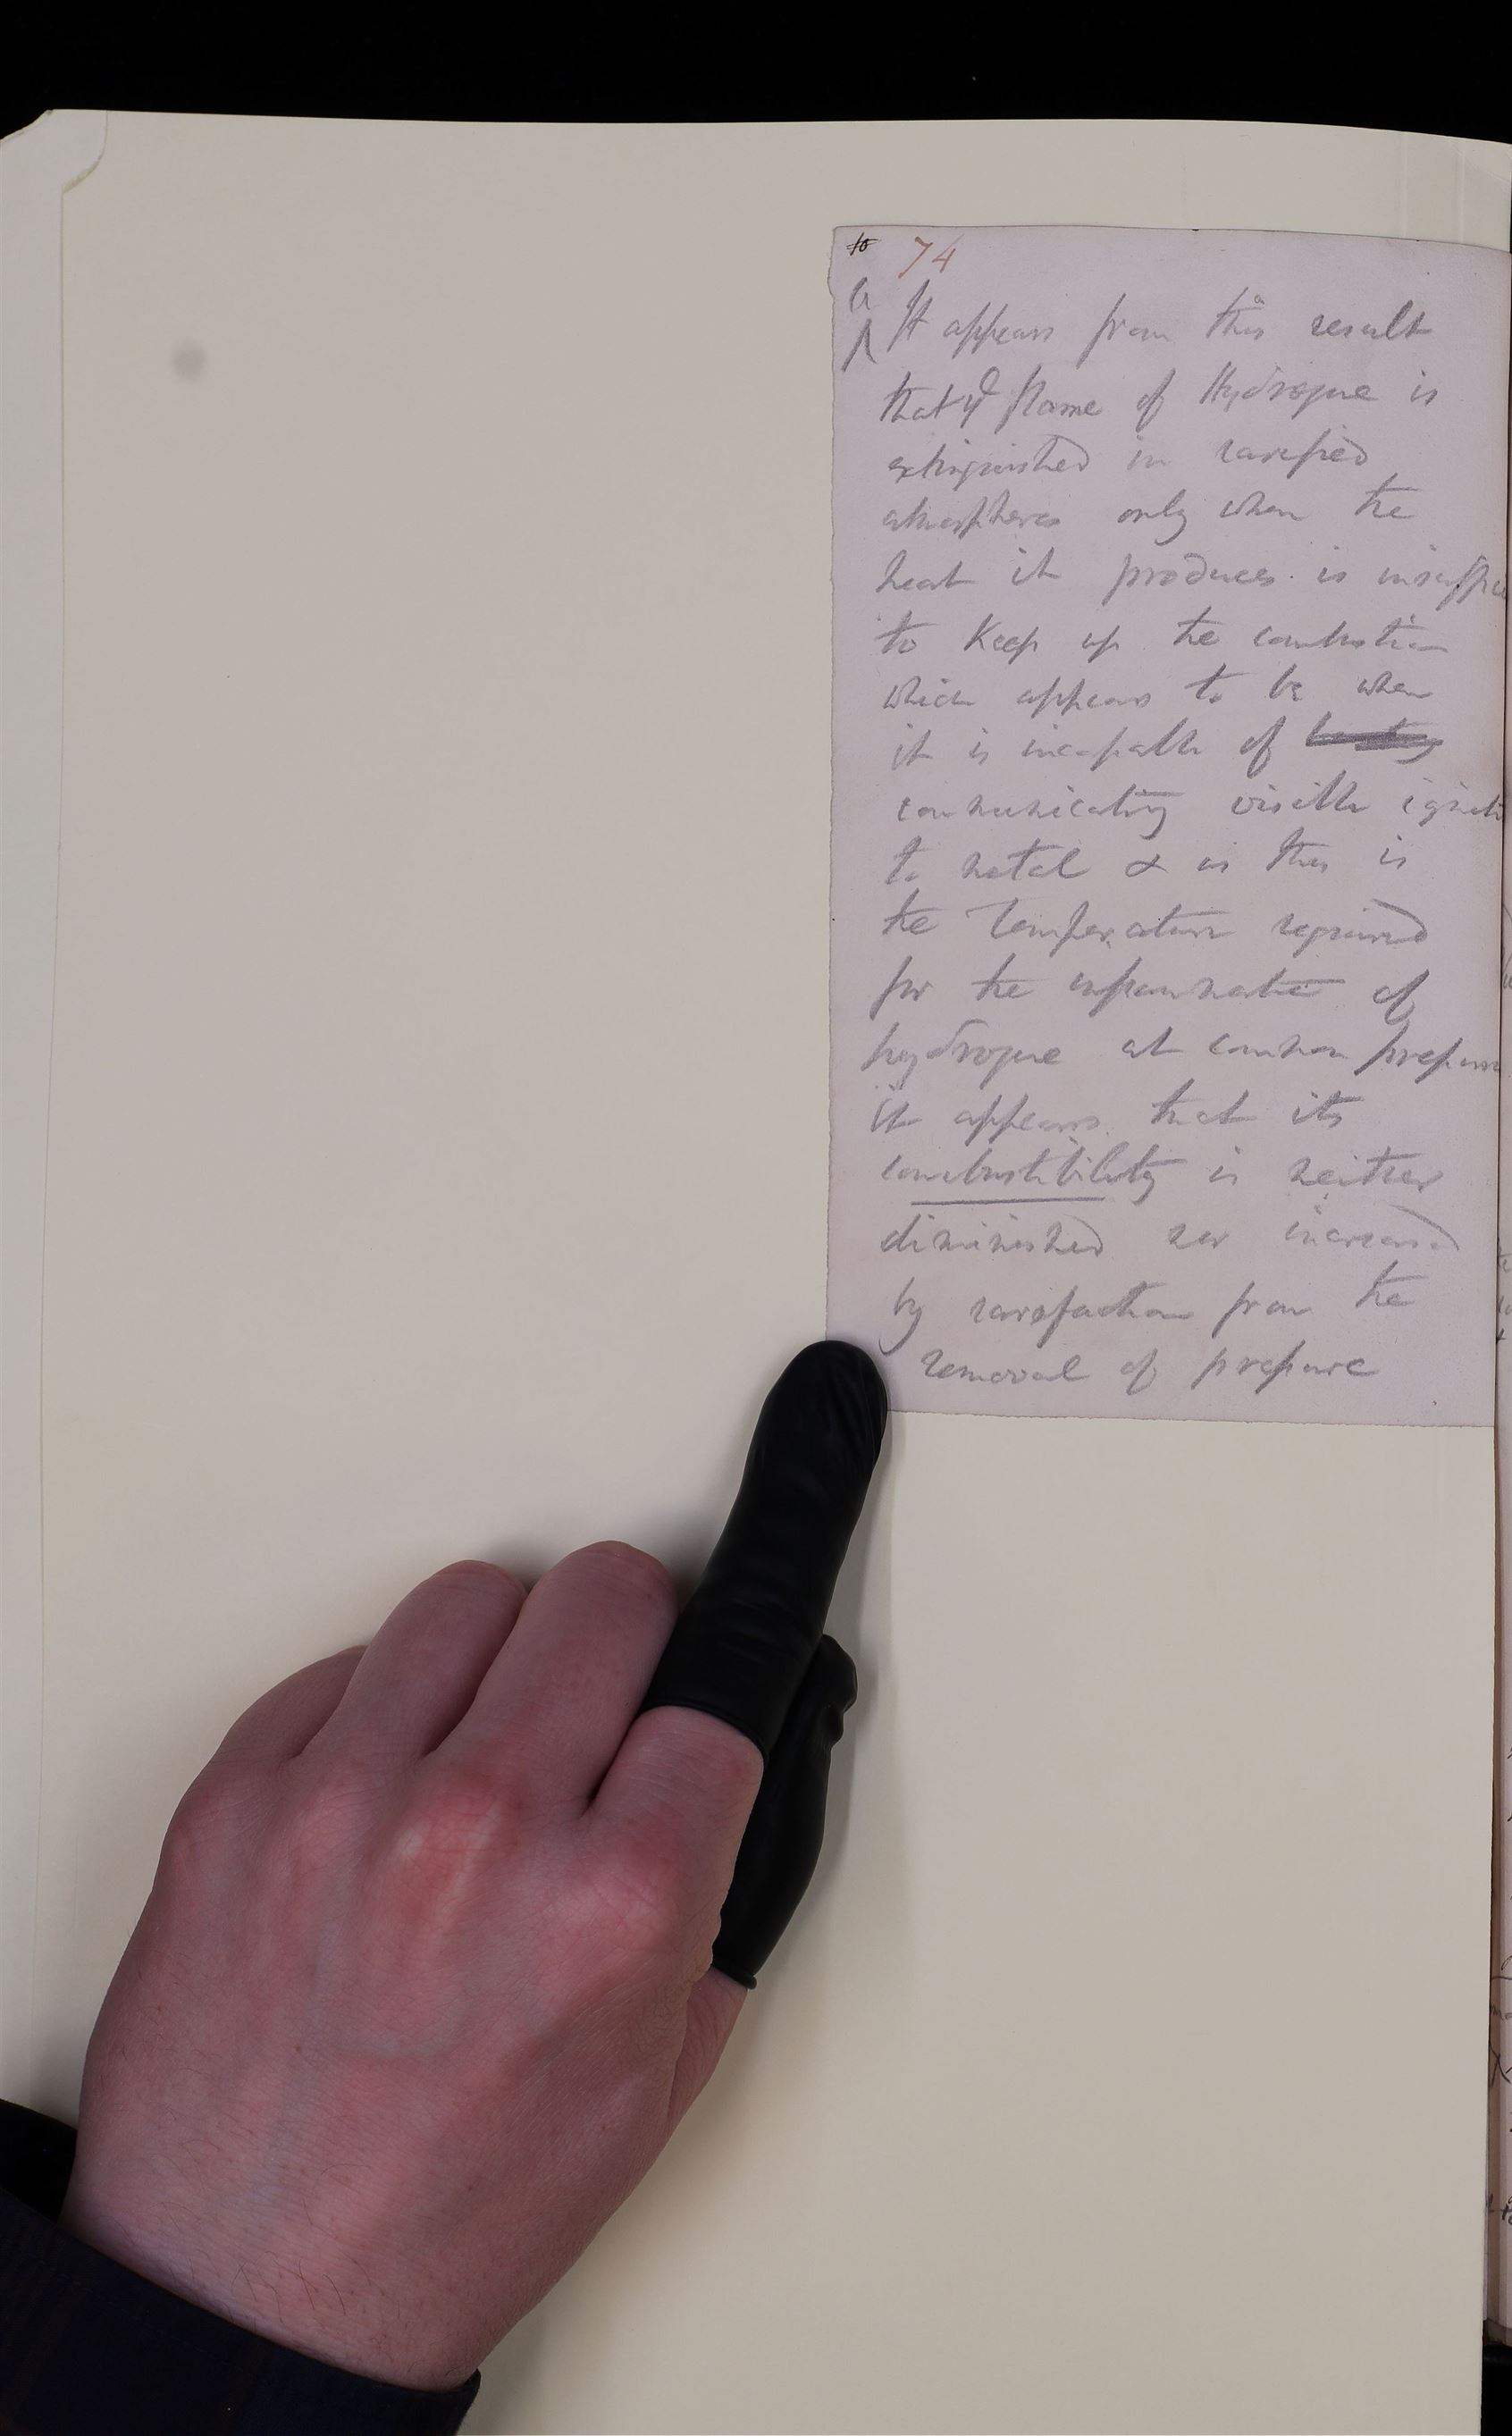 74
It appears from this result
that ye flame of Hydrogene is
extinguished in rarefied
atmospheres only when the
heat it produces is insuffici
to Keep up the combustion
which appears to be when
it is incapable of
communicating visible igniti
to metal & as this is
the Temperature required
for the inflammation of
hydrogene at common prefsure
it appears that its
combustibility is neither
diminished nor increased
by rarefaction from the
removal of prefsure